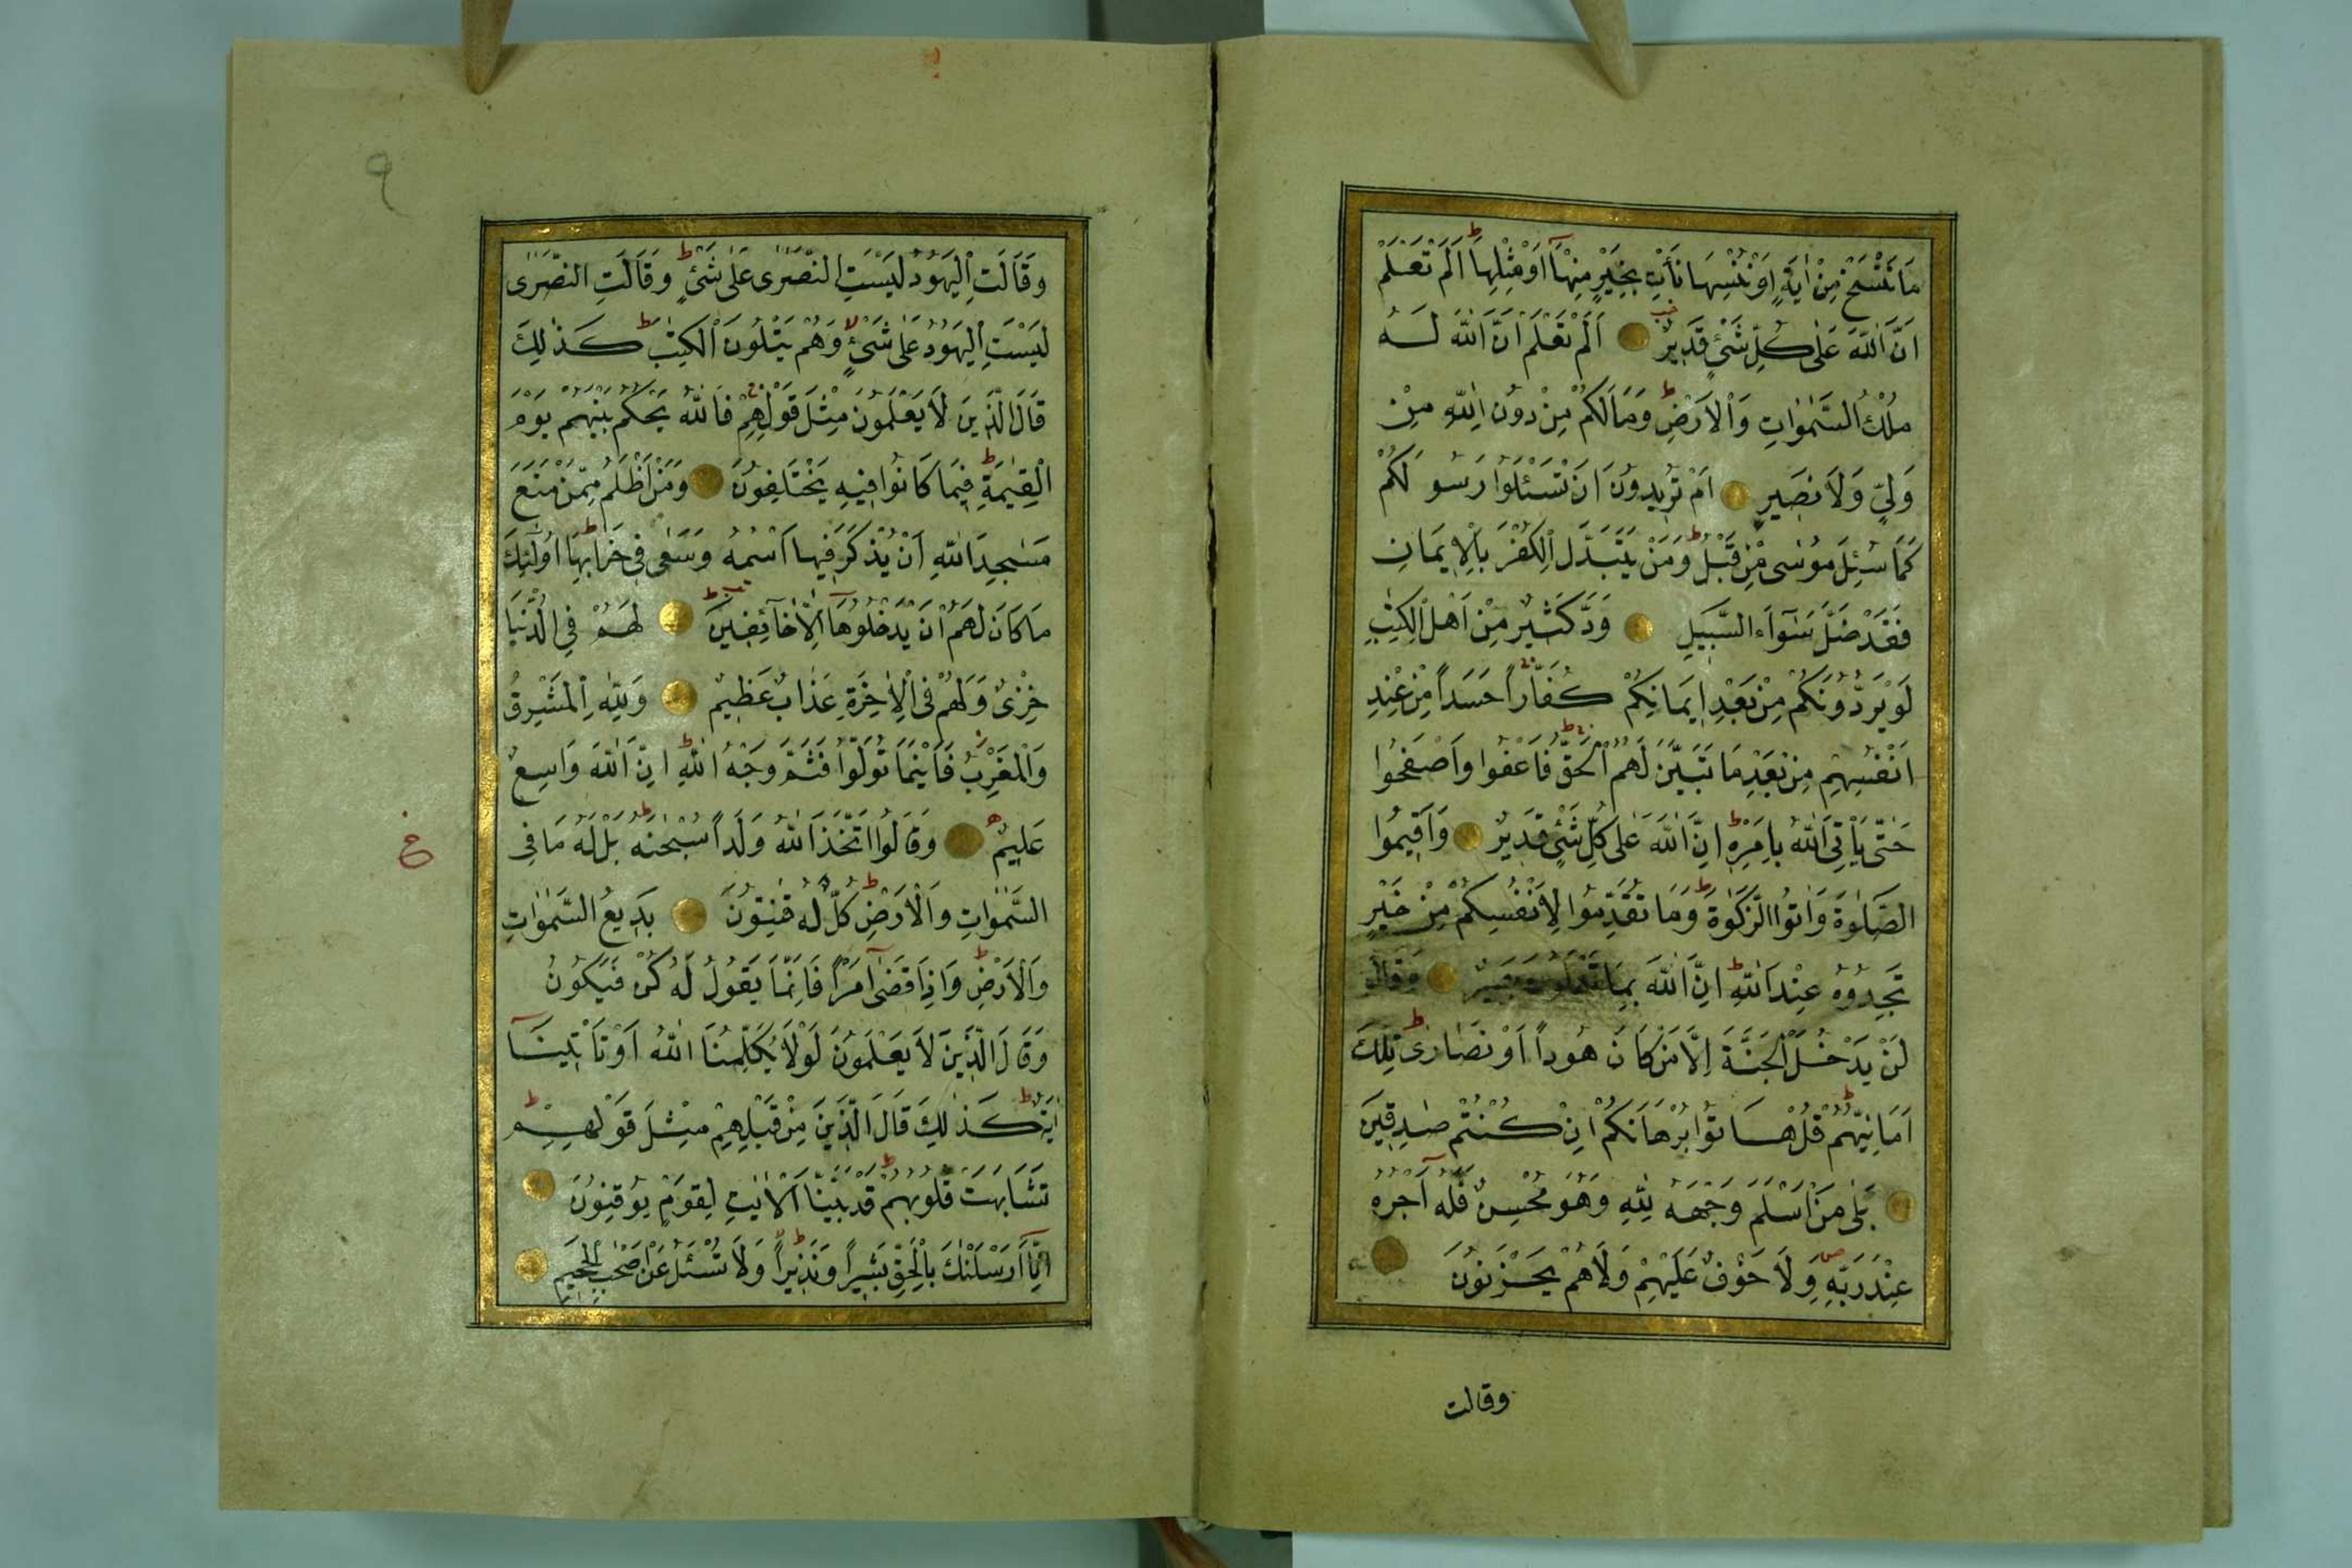 مَا نَنْسَخْ مِنْ اٰيَةٍ اَوْ نُنْسِهَا نَأْتِ بِخَيْرٍ مِنْهَٓا اَوْ مِثْلِهَا ط اَلَمْ تَعْلَمْ
اَنَّ اللّٰهَ عَلٰى كُلِّ شَىْءٍ قَدِيرٌ اَلَمْ تَعْلَمْ اَنَّ اللّٰهَ لَهُ
مُلْكُ السَّمٰوَاتِ وَالْاَرْضِ ط وَمَا لَكُمْ مِنْ دُونِ اللّٰهِ مِنْ
وَلِىٍّ وَلَا نَصِيرٍ اَمْ تُرِيدُونَ اَنْ تَسْئَلُوا رَسُولَكُمْ
كَمَا سُئِلَ مُوسٰى مِنْ قَبْلُ ط وَمَنْ يَتَبَدَّلِ الْكُفْرَ بِالْاِيمَانِ
فَقَدْ ضَلَّ سَوَٓاءَ السَّبِيلِ وَدَّ كَثِيرٌ مِنْ اَهْلِ الْكِتٰبِ
لَوْ يَرُدُّونَكُمْ مِنْ بَعْدِ اِيمَانِكُمْ كُفَّاراً حَسَداً مِنْ عِنْدِ
اَنْفُسِهِمْ مِنْ بَعْدِ مَا تَبَيَّنَ لَهُمُ الْحَقُّ فَاعْفُوا وَاصْفَحُوا
حَتّٰى يَأْتِىَ اللّٰهُ بِاَمْرِهِ ط اِنَّ اللّٰهَ عَلٰى كُلِّ شَىْءٍ قَدِيرٌ وَاَقِيمُوا
الصَّلٰوةَ وَاٰتُوا الزَّكٰوةَ ط وَمَا تُقَدِّمُوا لِاَنْفُسِكُمْ مِنْ خَيْرٍ
تَجِدُوهُ عِنْدَ اللّٰهِ ط اِنَّ اللّٰهَ بِمَا تَعْمَلُونَ بَصِيرٌ وَقَالُوا
لَنْ يَدْخُلَ الْجَنَّةَ اِلَّا مَنْ كَانَ هُوداً اَوْ نَصَارٰى ط تِلْكَ
اَمَانِيُّهُمْ ط قُلْ هَاتُوا بُرْهَانَكُمْ اِنْ كُنْتُمْ صٰدِقِينَ
بَلٰى مَنْ اَسْلَمَ وَجْهَهُ لِلّٰهِ وَهُوَ مُحْسِنٌ فَلَهُٓ اَجْرُهُ
عِنْدَ رَبِّهِ ص وَلَا خَوْفٌ عَلَيْهِمْ وَلَا هُمْ يَحْزَنُونَ
وقالت
٩
وَقَالَتِ الْيَهُودُ لَيْسَتِ النَّصَرٰى عَلٰى شَىْءٍ ط وَقَالَتِ النَّصَرٰى
لَيْسَتِ الْيَهُودُ عَلٰى شَىْءٍ لا وَهُمْ يَتْلُونَ الْكِتٰبَ ط كَذٰلِكَ
قَالَ الَّذِينَ لَا يَعْلَمُونَ مِثْلَ قَوْلِهِمْ ج فَاللّٰهُ يَحْكُمُ بَيْنَهُمْ يَوْمَ
الْقِيٰمَةِ فِيمَا كَانُوا فِيهِ يَخْتَلِفُونَ وَمَنْ اَظْلَمُ مِمَّنْ مَنَعَ
مَسٰجِدَ اللّٰهِ اَنْ يُذْكَرَ فِيهَا اسْمُهُ وَسَعٰى فِى خَرَابِهَا ط اُولٰٓئِكَ
مَا كَانَ لَهُمْ اَنْ يَدْخُلُوهَٓا اِلَّا خَٓائِفِينَ ط لَهُمْ فِى الدُّنْيَا
خِزْىٌ وَلَهُمْ فِى الْاٰخِرَةِ عَذَابٌ عَظِيمٌ وَلِلّٰهِ الْمَشْرِقُ
وَالْمَغْرِبُ فَاَيْنَمَا تُوَلُّوا فَثَمَّ وَجْهُ اللّٰهِ ط اِنَّ اللّٰهَ وَاسِعٌ
عَلِيمٌ وَقَالُوا اتَّخَذَ اللّٰهُ وَلَداً سُبْحٰنَهُ ط بَلْ لَهُ مَا فِى
السَّمٰوَاتِ وَالْاَرْضِ ط كُلٌّ لَهُ قٰنِتُونَ بَدِيعُ السَّمٰوَاتِ
وَالْاَرْضِ ط وَاِذَا قَضٰٓى اَمْراً فَاِنَّمَا يَقُولُ لَهُ كُنْ فَيَكُونُ
وَقَالَ الَّذِينَ لَا يَعْلَمُونَ لَوْلَا يُكَلِّمُنَا اللّٰهُ اَوْ تَأْتِينَٓا
اٰيَةٌ ط كَذٰلِكَ قَالَ الَّذِينَ مِنْ قَبْلِهِمْ مِثْلَ قَوْلِهِمْ ط
تَشَابَهَتْ قُلُوبُهُمْ ط قَدْ بَيَّنَّا الْاٰيٰتِ لِقَوْمٍ يُوقِنُونَ
اِنَّٓا اَرْسَلْنٰكَ بِالْحَقِّ بَشِيراً وَنَذِيراً وَلَا تُسْئَلُ عَنْ اَصْحٰبِ الْجَحِيمِ